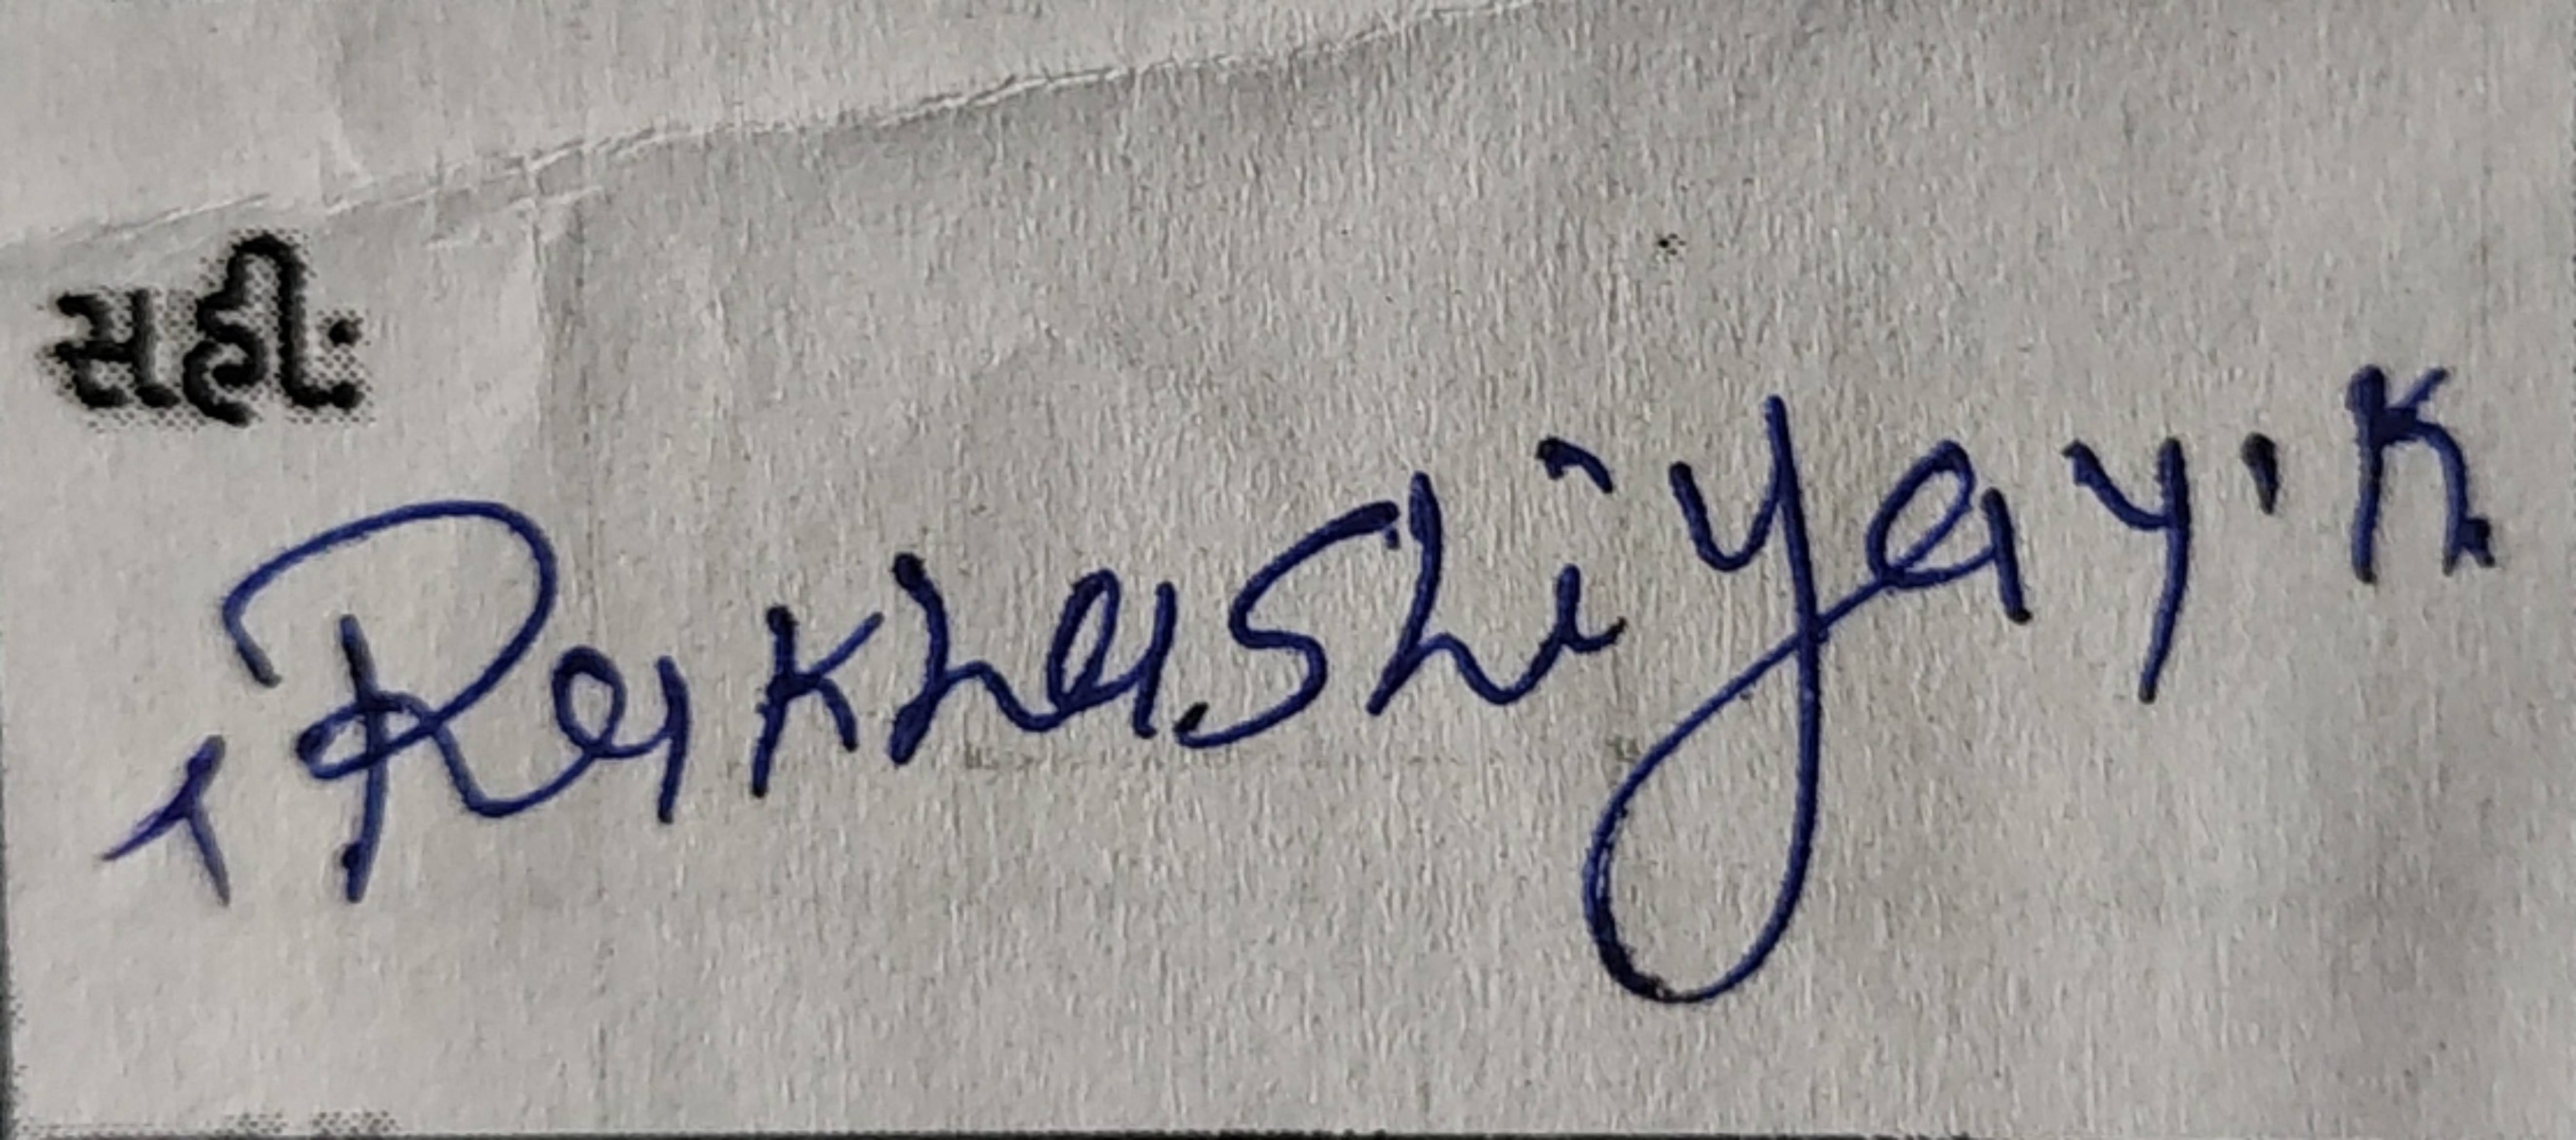 સહીઃ
Rakhashiya y. K